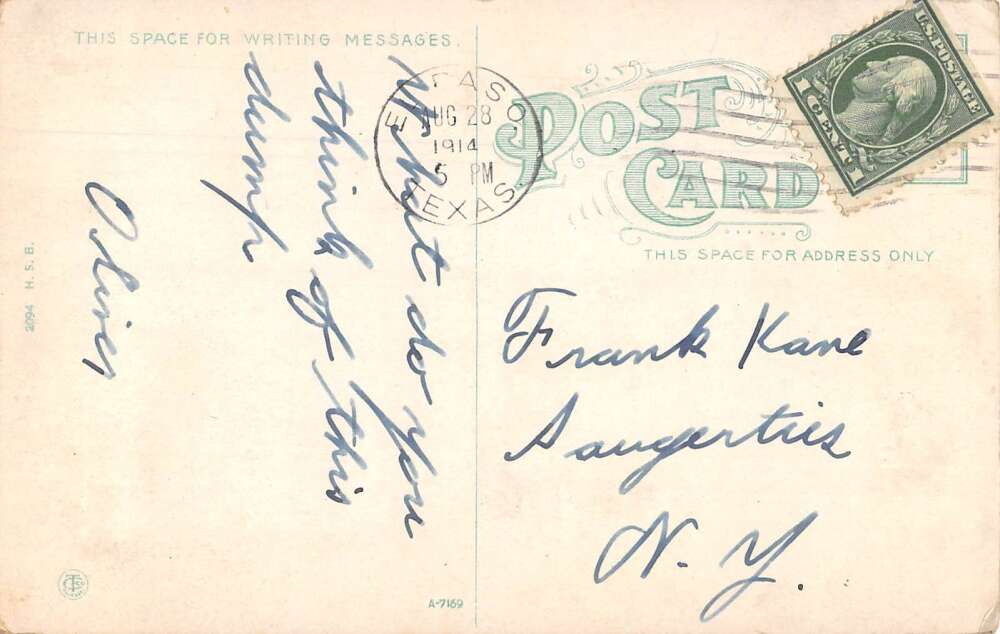 THIS SPACE FOR WRITING MESSAGES.
What do you
think of this
dump
Oliver
EL PASO
AUG 28
1914
5 PM
TEXAS.
POST
CARD
U.S. POSTAGE
1 CENT 1
THIS SPACE FOR ADDRESS ONLY
Frank Kane
Saugerties
N. Y.
2094 H. S. B.
A-7169